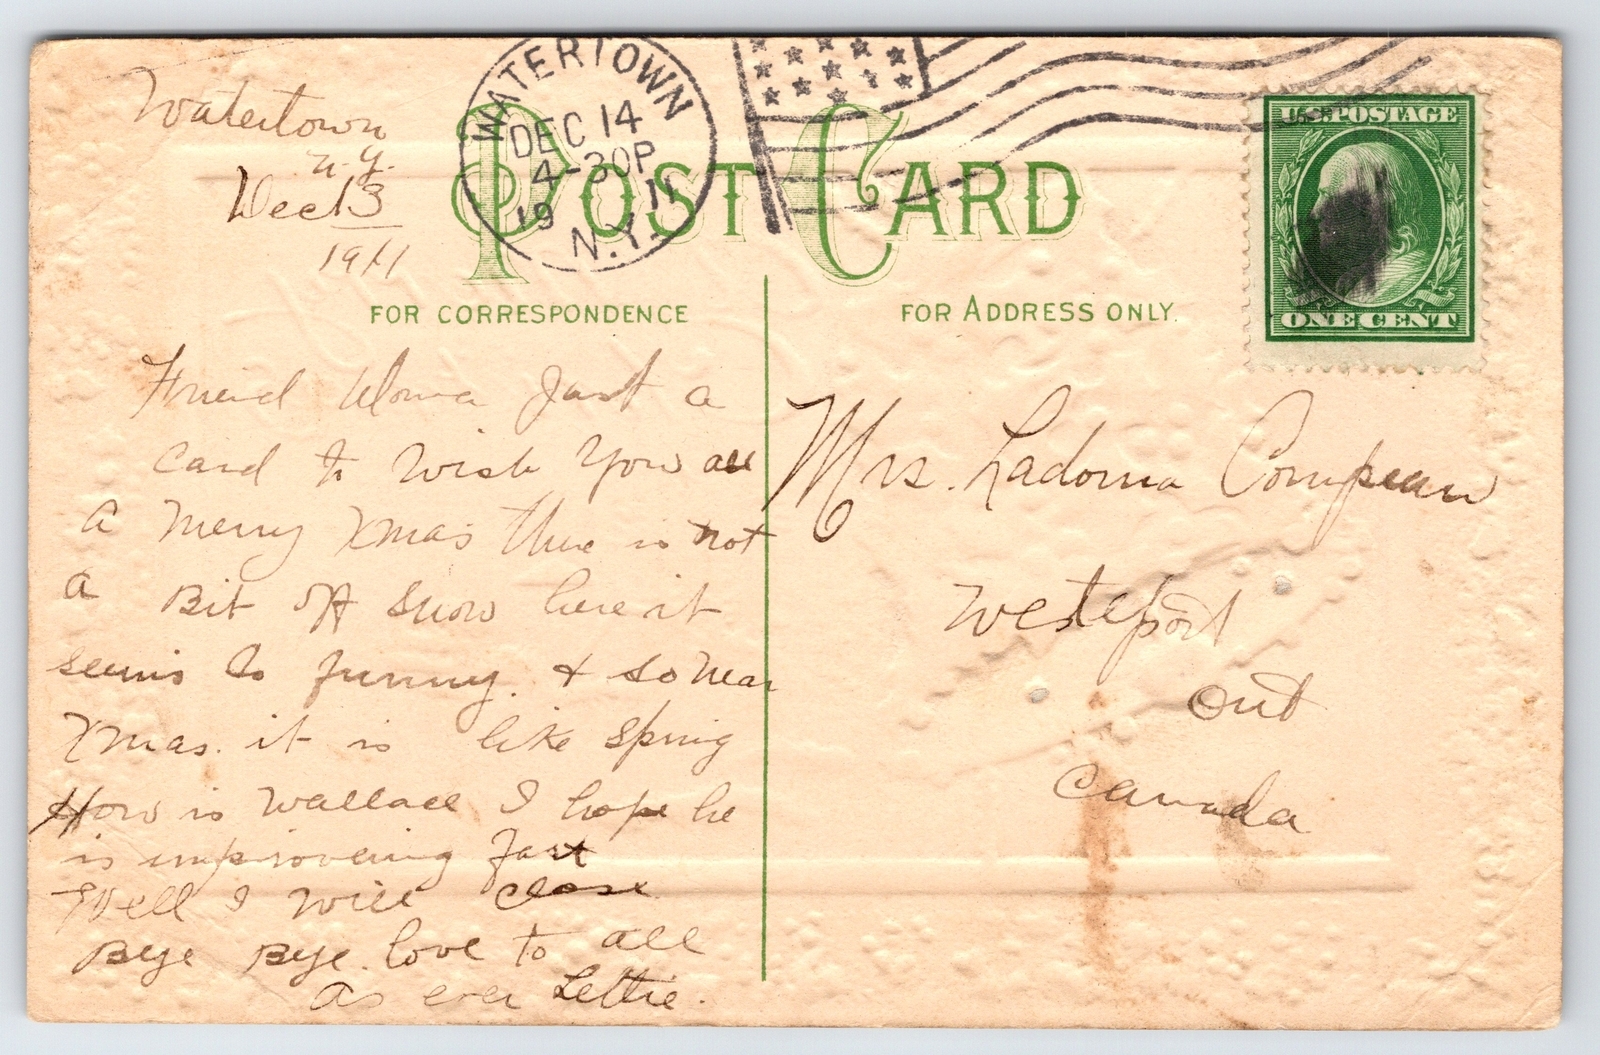 Watertown
N.Y.
Dec 13
1911
WATERTOWN
DEC 14
4-30P
19 11
N.Y.
POST CARD
U.S. POSTAGE
ONE CENT
FOR CORRESPONDENCE
FOR ADDRESS ONLY.
Friend Just a
Card to Wish You all
A Merry Xmas there is not
a Bit off Snow here it
seems So funny. & so near
Xmas. it is like Spring
How is Wallace I hope he
is improveing fast
Well I will close
Bye Bye. love to all
As ever Lettie.
Mrs. Ladorna Compeau
Westport
Ont
Canada